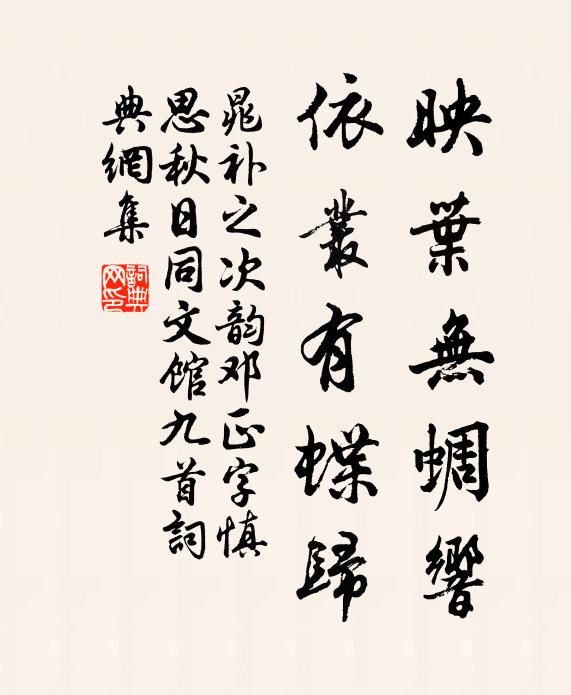 映葉無蜩響
依叢有蝶歸
晁补之次韵邓正字慎
思秋日同文馆九首詞
典網集
詞典網印